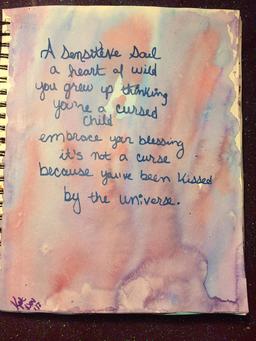 A Sensitive Soul
a heart of wild
you grew up thinking
you're a cursed
child
embrace your blessing
it's not a curse
because you've been kissed
by the universe.